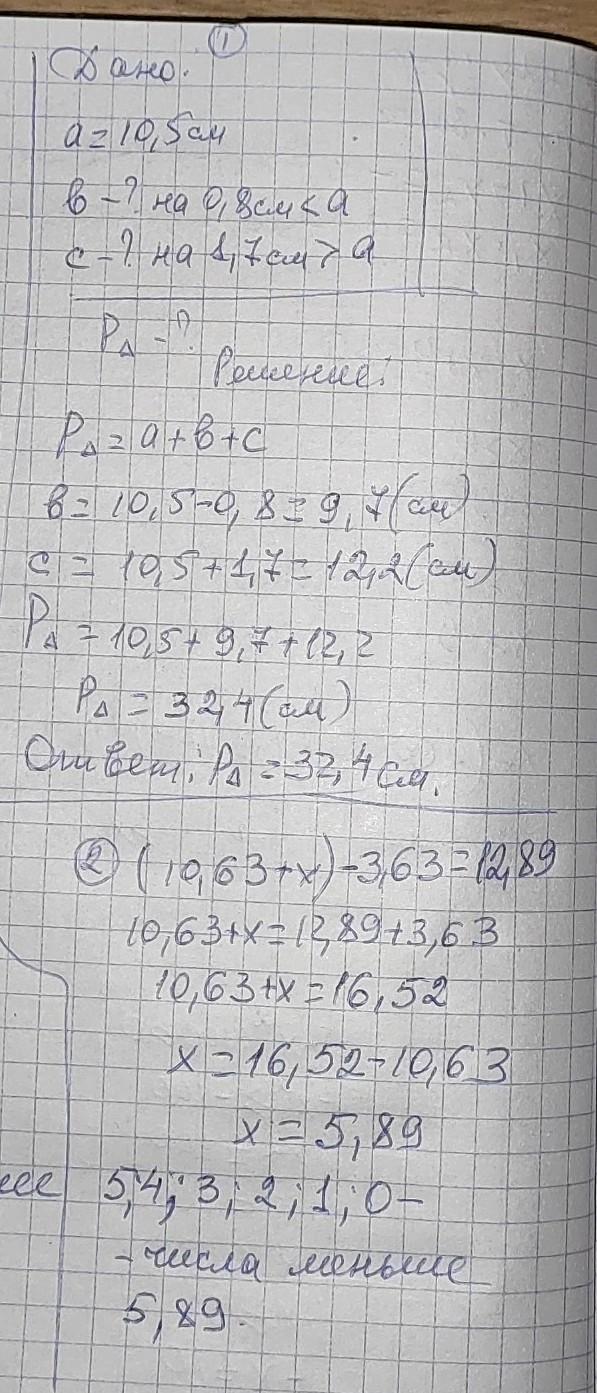 ①
Дано:
a=10,5см
в-? на 0,8см<a
с-? на 1,7см>a
P△-?
Решение:
P△=a+в+с
в= 10,5-0,8=9,7(см)
с= 10,5+1,7=12,2(см)
P△=10,5+9,7+12,2
P△=32,4(см)
Ответ: P△=32,4см.
② (10,63+x)-3,63=12,89
10,63+x=12,89+3,63
10,63+x=16,52
x=16,52-10,63
x=5,89
5;4; 3; 2; 1; 0-
-числа меньше
5,89.